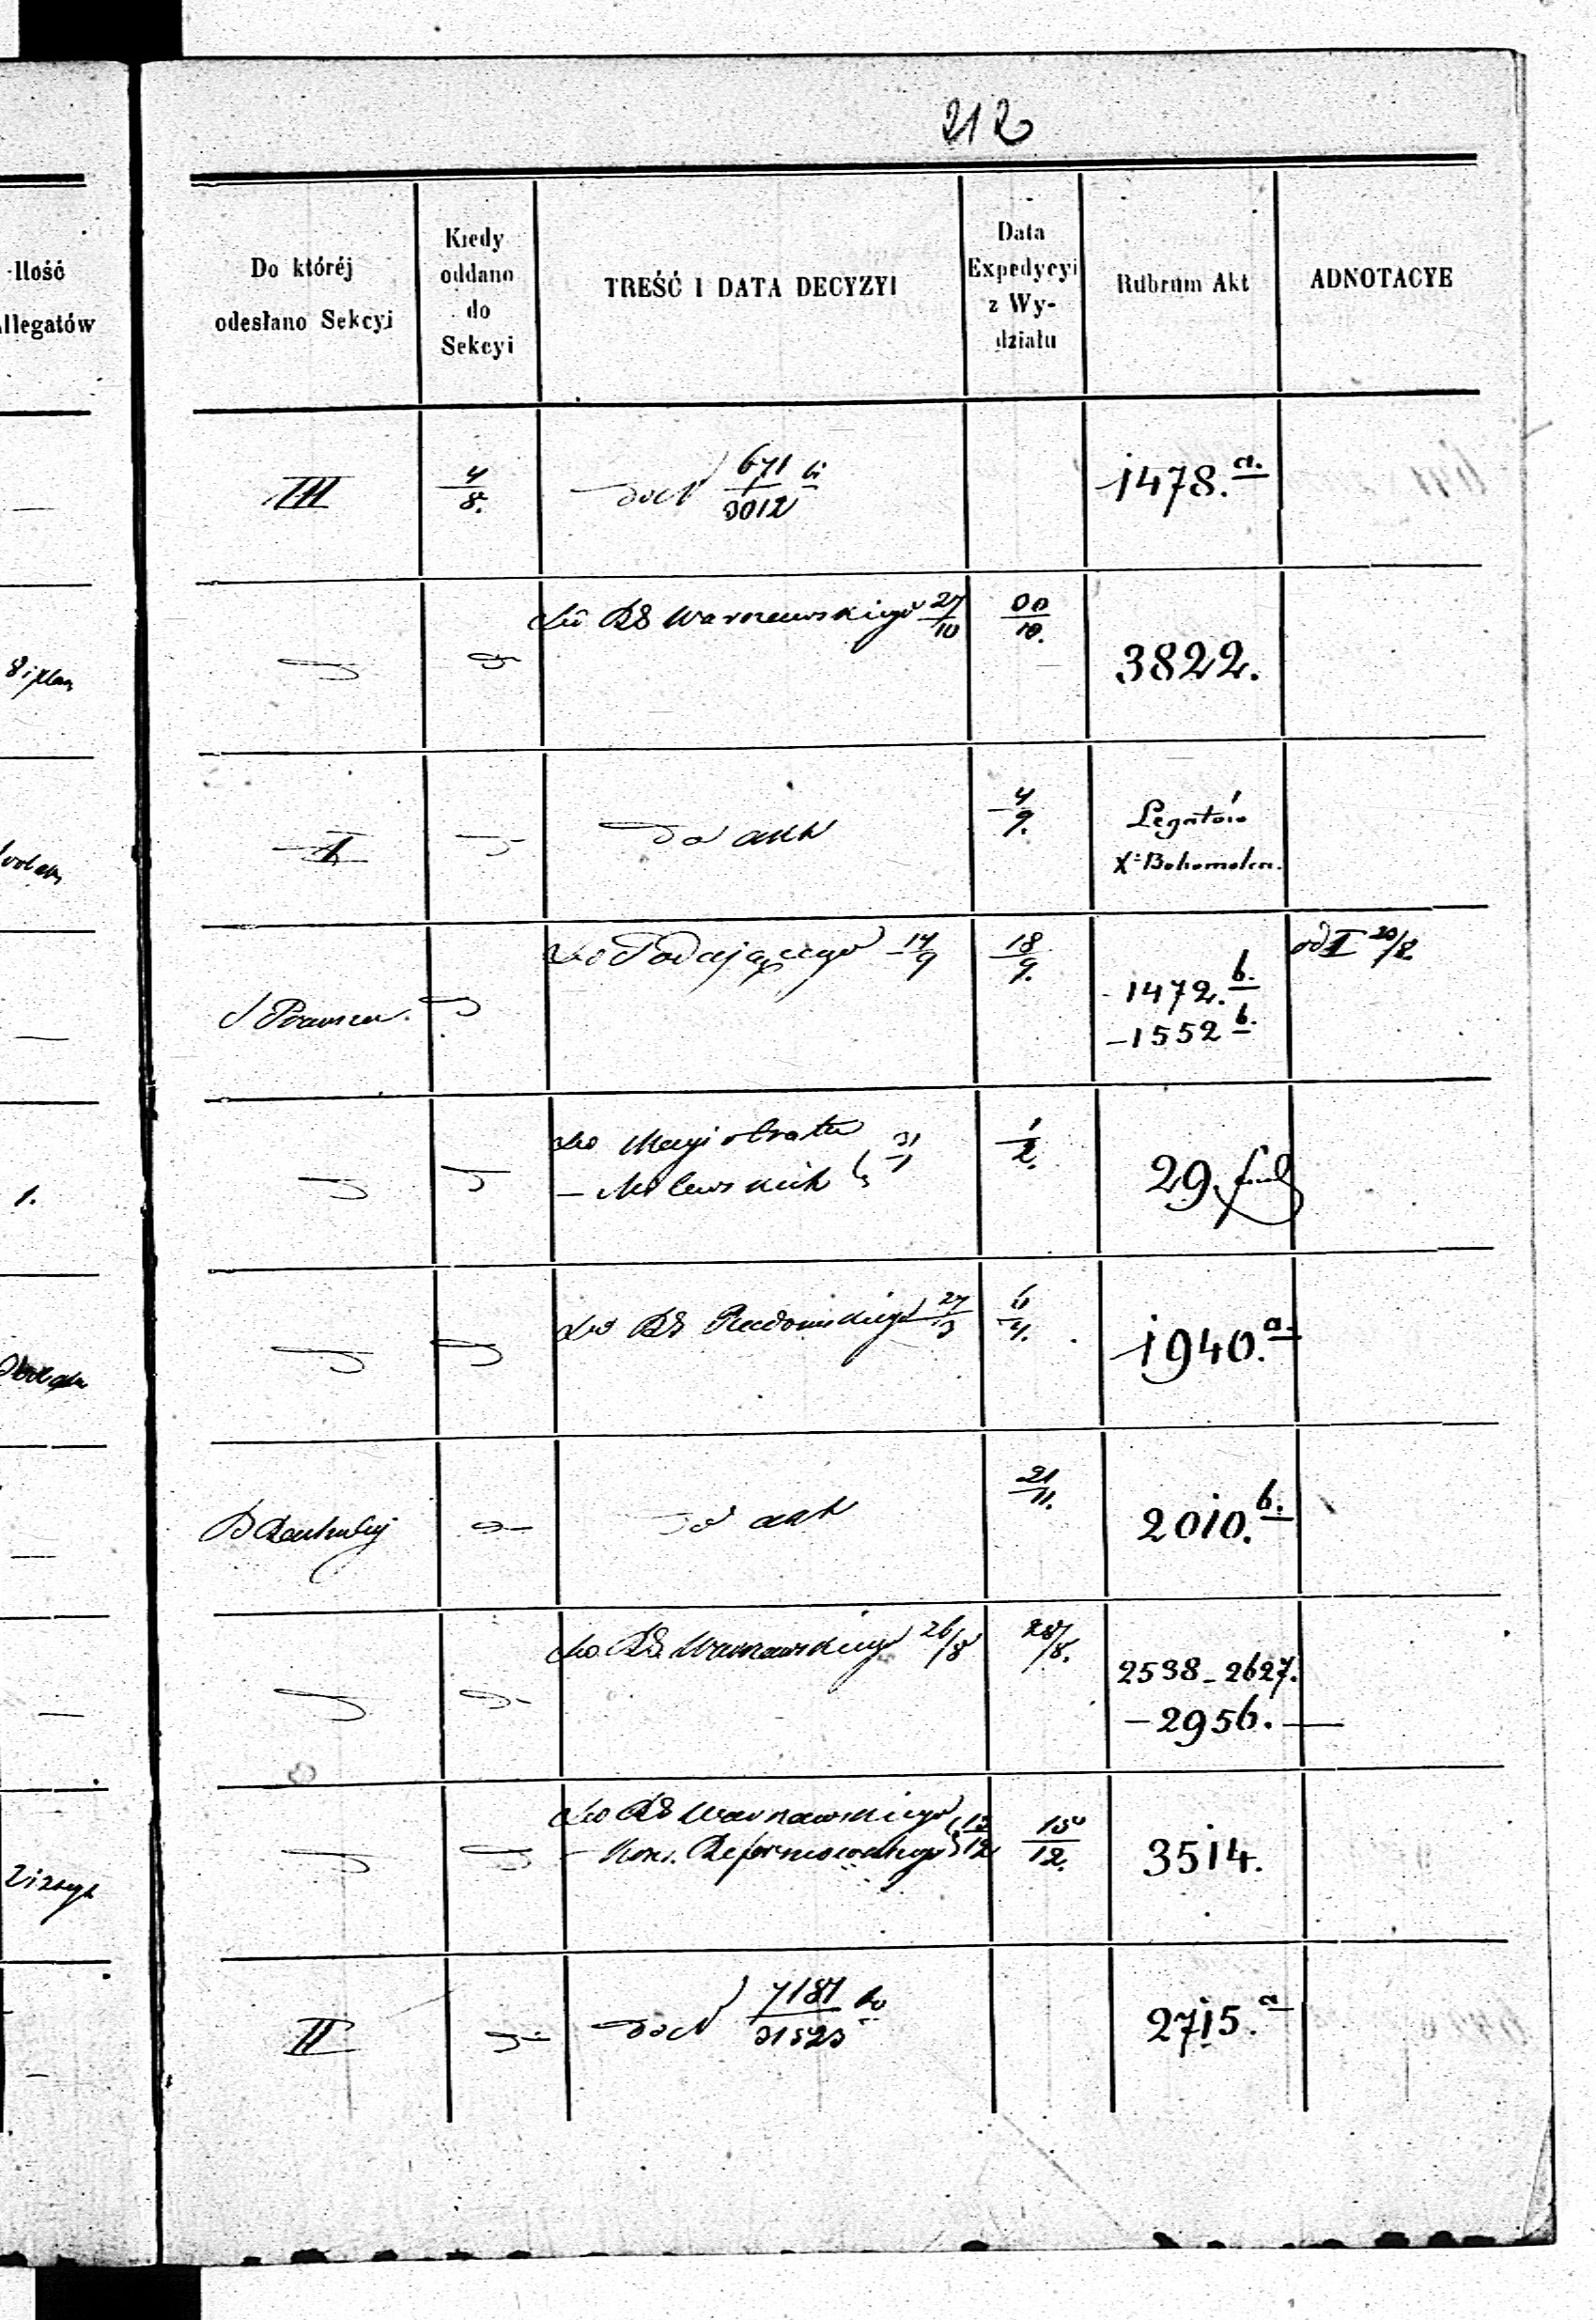 212
Ilość
Allegatów
Do któréj
odesłano Sekcyi
Kiedy
oddano
do
Sekcyi
TREŚĆ I DATA DECYZYI
Data
Expedycyi
z Wy-
działu
Rubrum Akt
ADNOTACYE
III
4/8.
671/3012
1478.a.
8 i plan
Do RG Warszawskiego 27/10
30/10.
3822.
I
do akt
4/9.
Legatów
X. Bohomolca.
Do Podającego 14/9
18/9.
1472.b.
-1552 b.
od I 20/8
S Prawna.
1.
Do Magistratu
- Milewskich 31/1
1/2.
29.
Do RG Radomskiego 27/3
6/4.
1940.a.
do akt
21/11.
2010.b.
Do RG Warszawskiego 26/8
28/8.
2538-2627.
-2956.
Do RG Warszawskiego
- Kons. Reformowanego 12/12
15/12.
3514.
II
7187/31523
2715.a